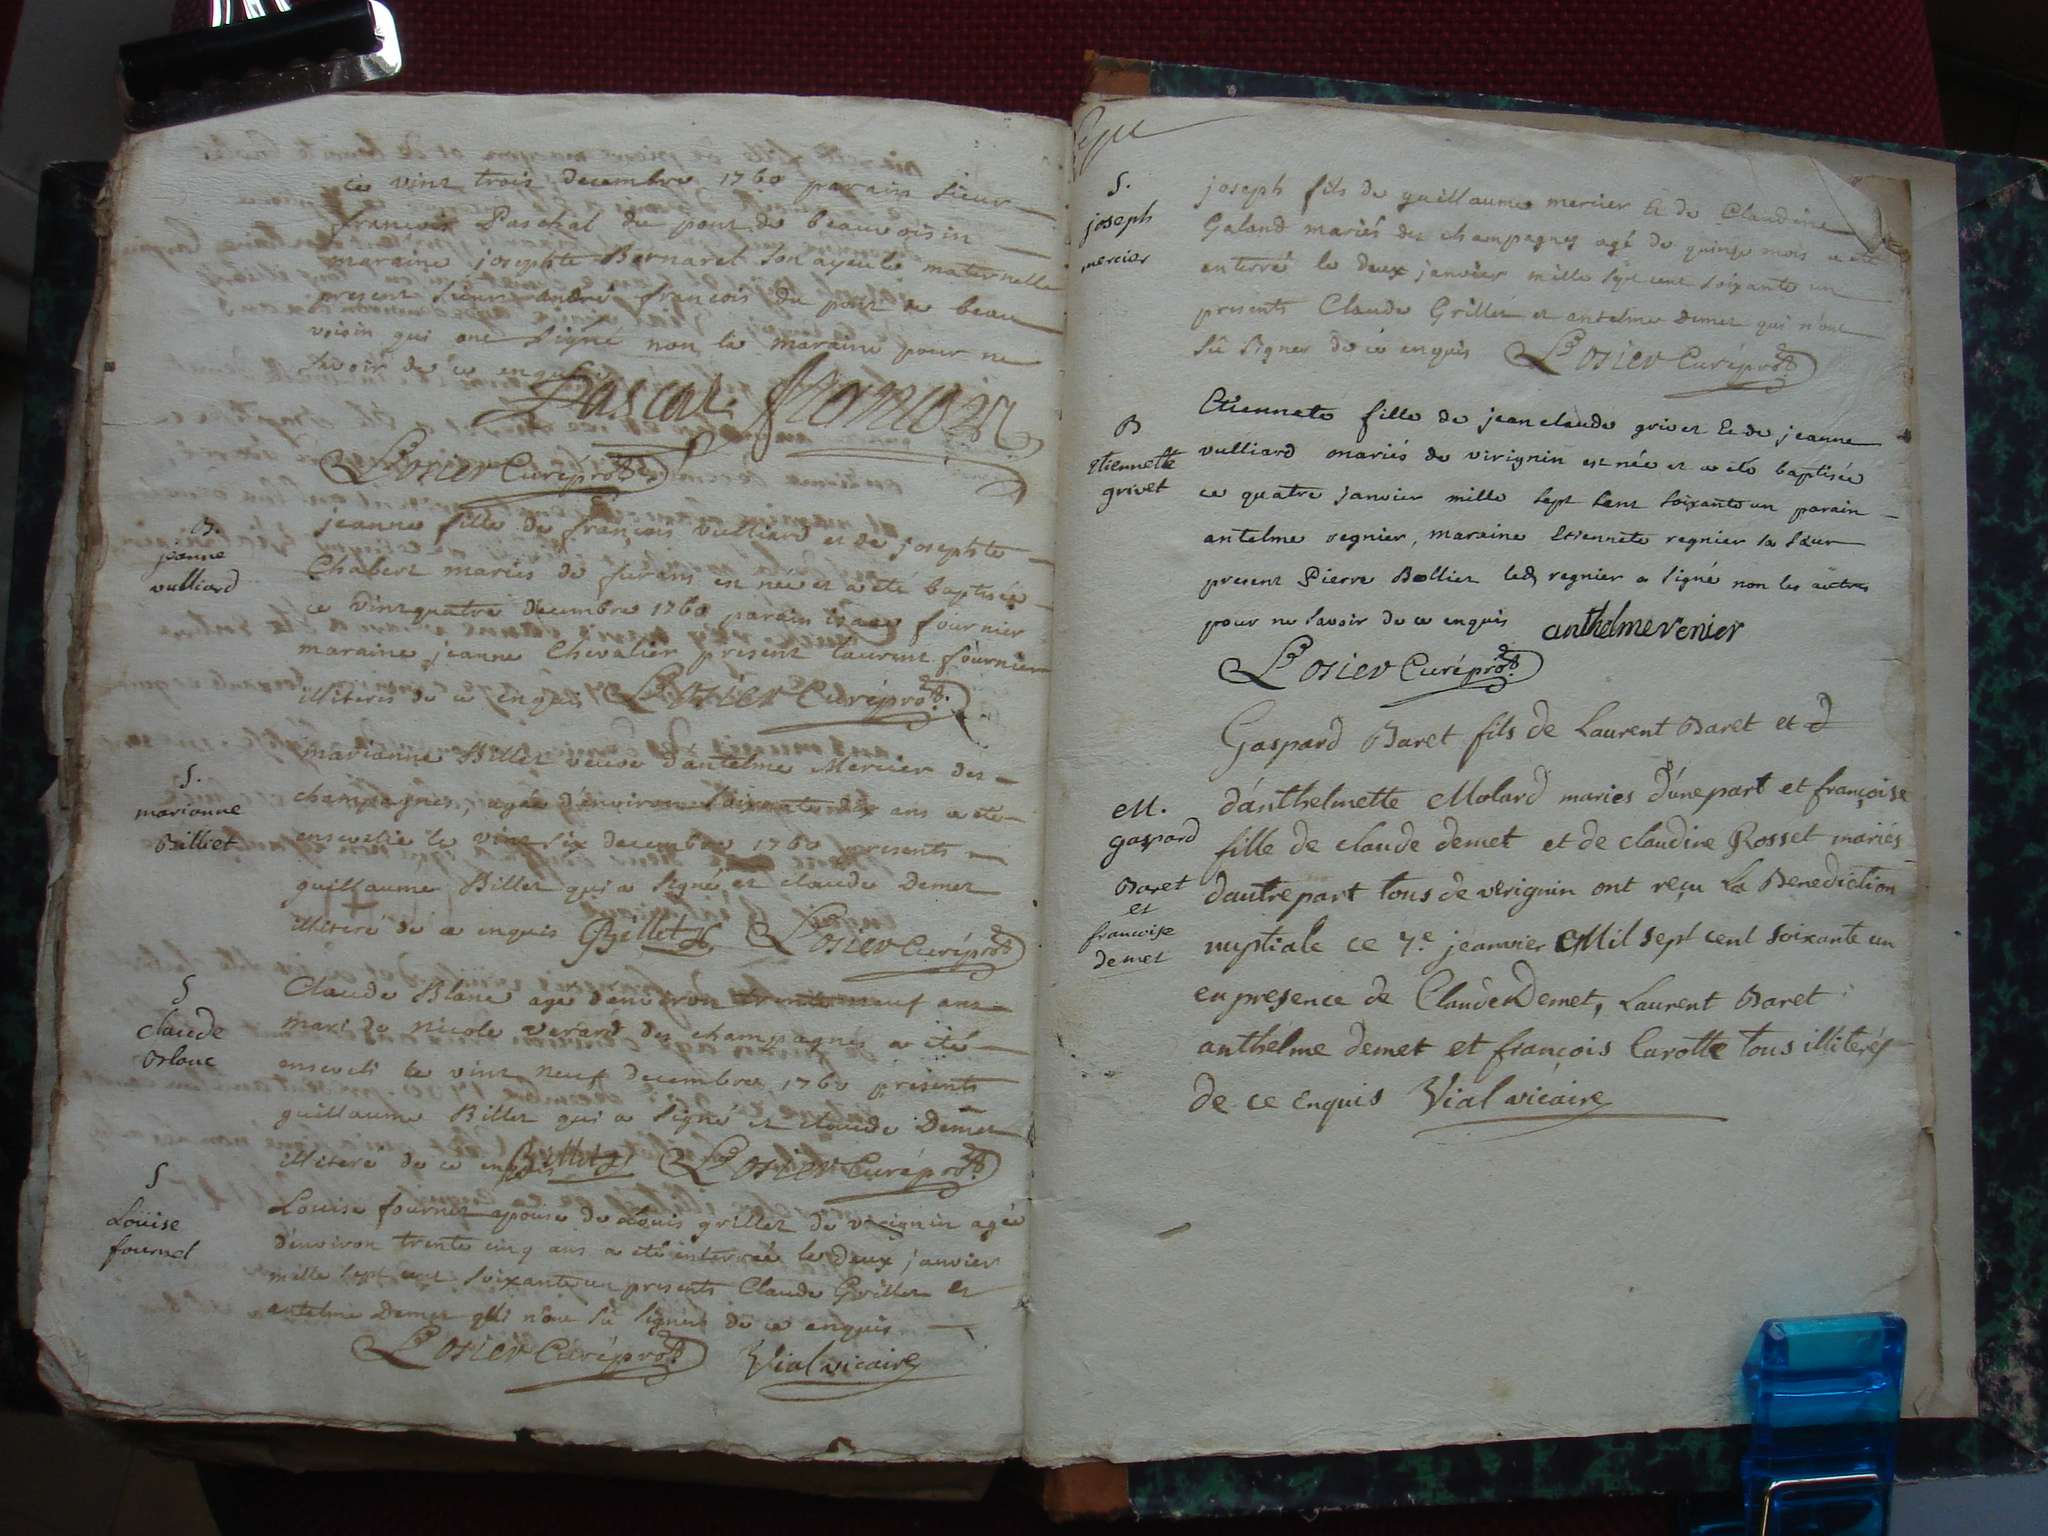 ce vint trois decembre 1760 parain sieur
francois Paschal du pont de beauvoisin
maraine josephte Bernard son ayeule maternelle
present sieur andré francois du pont de beau
voisin qui ont signé non la maraine pour ne
savoir de ce enquis
Pascal francois
Losier Curé
B.
jeanne
vulliard
jeanne fille de francois vulliard et de josephte
Chabert mariés de furans est née et a eté baptisée
ce vint quatre decembre 1760 parain isaac fournier
maraine jeanne Chevalier present laurent fournier
illiteres de ce enquis Losier Curé
S.
marianne
Billiet
marianne Billet veuve d'antelme Mercier des
champagnes, agée d'environ soixante dix ans a eté
ensevelie le vint six decembre 1760 presents
guillaume Billet qui a signé et claude Demet
illiteré de ce enquis GBillet Losier Curé
S
claude
Blanc
Claude Blanc agé d'environ trente neuf ans
mari de nicole verard des champagnes a eté
enseveli le vint neuf decembre 1760 presents
guillaume Billet qui a signé et claude Demet
illiteré de ce enquis Billet Losier Curé
S
Loüise
fournel
Louise fournet epouse de Louis grillet de virignin agée
d'environ trente cinq ans a eté enterrée le deux janvier
mille sept cent soixante un presents Claude Grillet et
antelme Demet qui n'ont sû signer de ce enquis
Losier Curé Vial vicaire
S.
joseph
mercier
joseph fils de guillaume mercier & de Claudine
Galand mariés des champagnes agé de quinze mois a eté
enterré le deux janvier mille sept cent soixante un
presents Claude Grillet et antelme demet qui n'ont
sû signer de ce enquis Losier Curé
B
etiennette
grivet
Etiennete fille de jean claude grivet & de jeanne
vulliard mariés de virignin est née et a eté baptisée
ce quatre janvier mille sept cent soixante un parain
antelme regnier, maraine Etiennete regnier sa sœur
present Pierre Bollier led regnier a signé non les autres
pour ne savoir de ce enquis anthelme renier
Losier Curé
M.
gaspard
Baret
et
francoise
demet
Gaspard Baret fils de Laurent Baret et d
d'anthelmette Molard mariés d'une part et françoise
fille de claude demet et de claudine Rosset mariés
d'autre part tous de verignin ont reçu la Benediction
nuptiale ce 7.e jeanvier Mil sept cent soixante un
en presence de Claude Demet, Laurent Baret
anthelme demet et françois Carotte tous illiterés
de ce enquis Vial vicaire